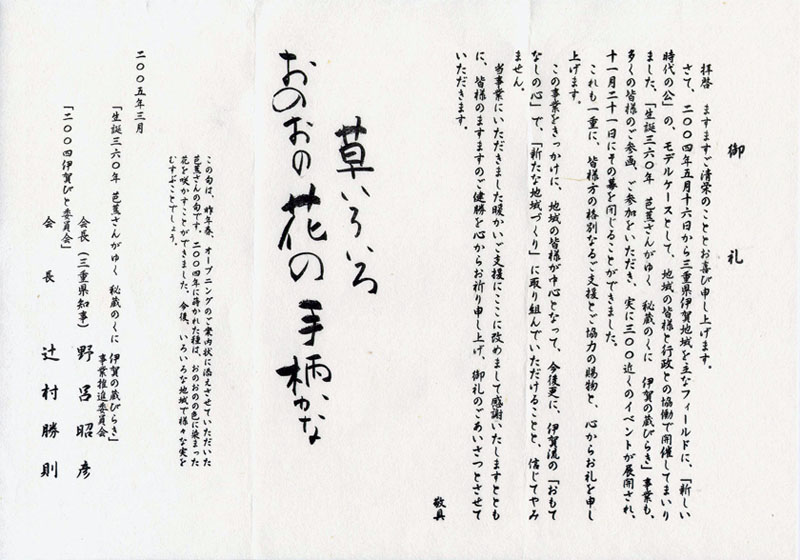 御礼
拝啓　ますますご清栄のこととお喜び申し上げます。
さて、二〇〇四年五月十六日から三重県伊賀地域を主なフィールドに、「新しい
時代の公」の、モデルケースとして、地域の皆様と行政との協働で開催してまいり
ました、「生誕三六〇年　芭蕉さんがゆく　秘蔵のくに　伊賀の蔵びらき」事業も、
多くの皆様のご参画、ご参加をいただき、実に三〇〇近くのイベントが展開され、
十一月二十一日にその幕を閉じることができました。
これも一重に、皆様方の格別なるご支援とご協力の賜物と、心からお礼を申し
上げます。
この事業をきっかけに、地域の皆様が中心となって、今後更に、伊賀流の「おもて
なしの心」で、「新たな地域づくり」に取り組んでいただけることと、信じてやみ
ません。
当事業にいただきました暖かいご支援にここに改めまして感謝いたしますととも
に、皆様のますますのご健勝を心からお祈り申し上げ、御礼のごあいさつとさせて
いただきます。
敬具
草いろいろ
おのおの花の手柄かな
この句は、昨年春、オープニングのご案内状に添えさせていただいた
芭蕉さんの句です。二〇〇四年に蒔かれた種は、おのおのの色に染まった
花を咲かすことができました。今後、いろいろな地域で様々な実を
むすぶことでしょう。
二〇〇五年三月
「生誕三六〇年　芭蕉さんがゆく　秘蔵のくに　伊賀の蔵びらき」
事業推進委員会
会長（三重県知事）　野呂昭彦
「二〇〇四伊賀びと委員会」
会長　辻村勝則